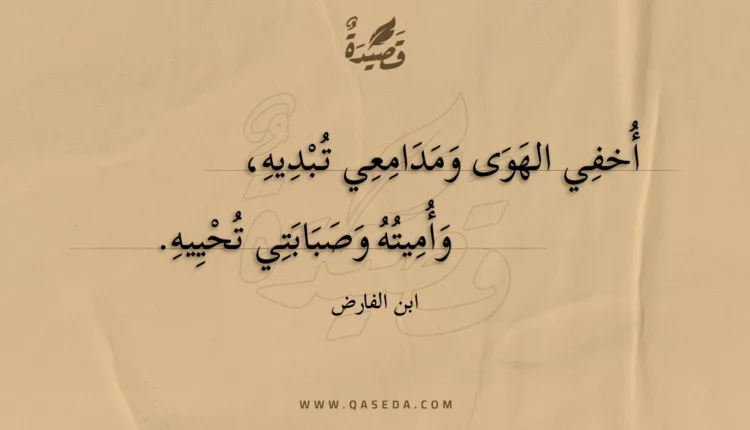 قَصِيدَةٌ
أُخفِي الهَوَى وَمَدَامِعِي تُبْدِيهِ،
وَأُمِيتُهُ وَصَبَابَتِي تُحْيِيهِ.
ابن الفارض
WWW.QASEDA.COM